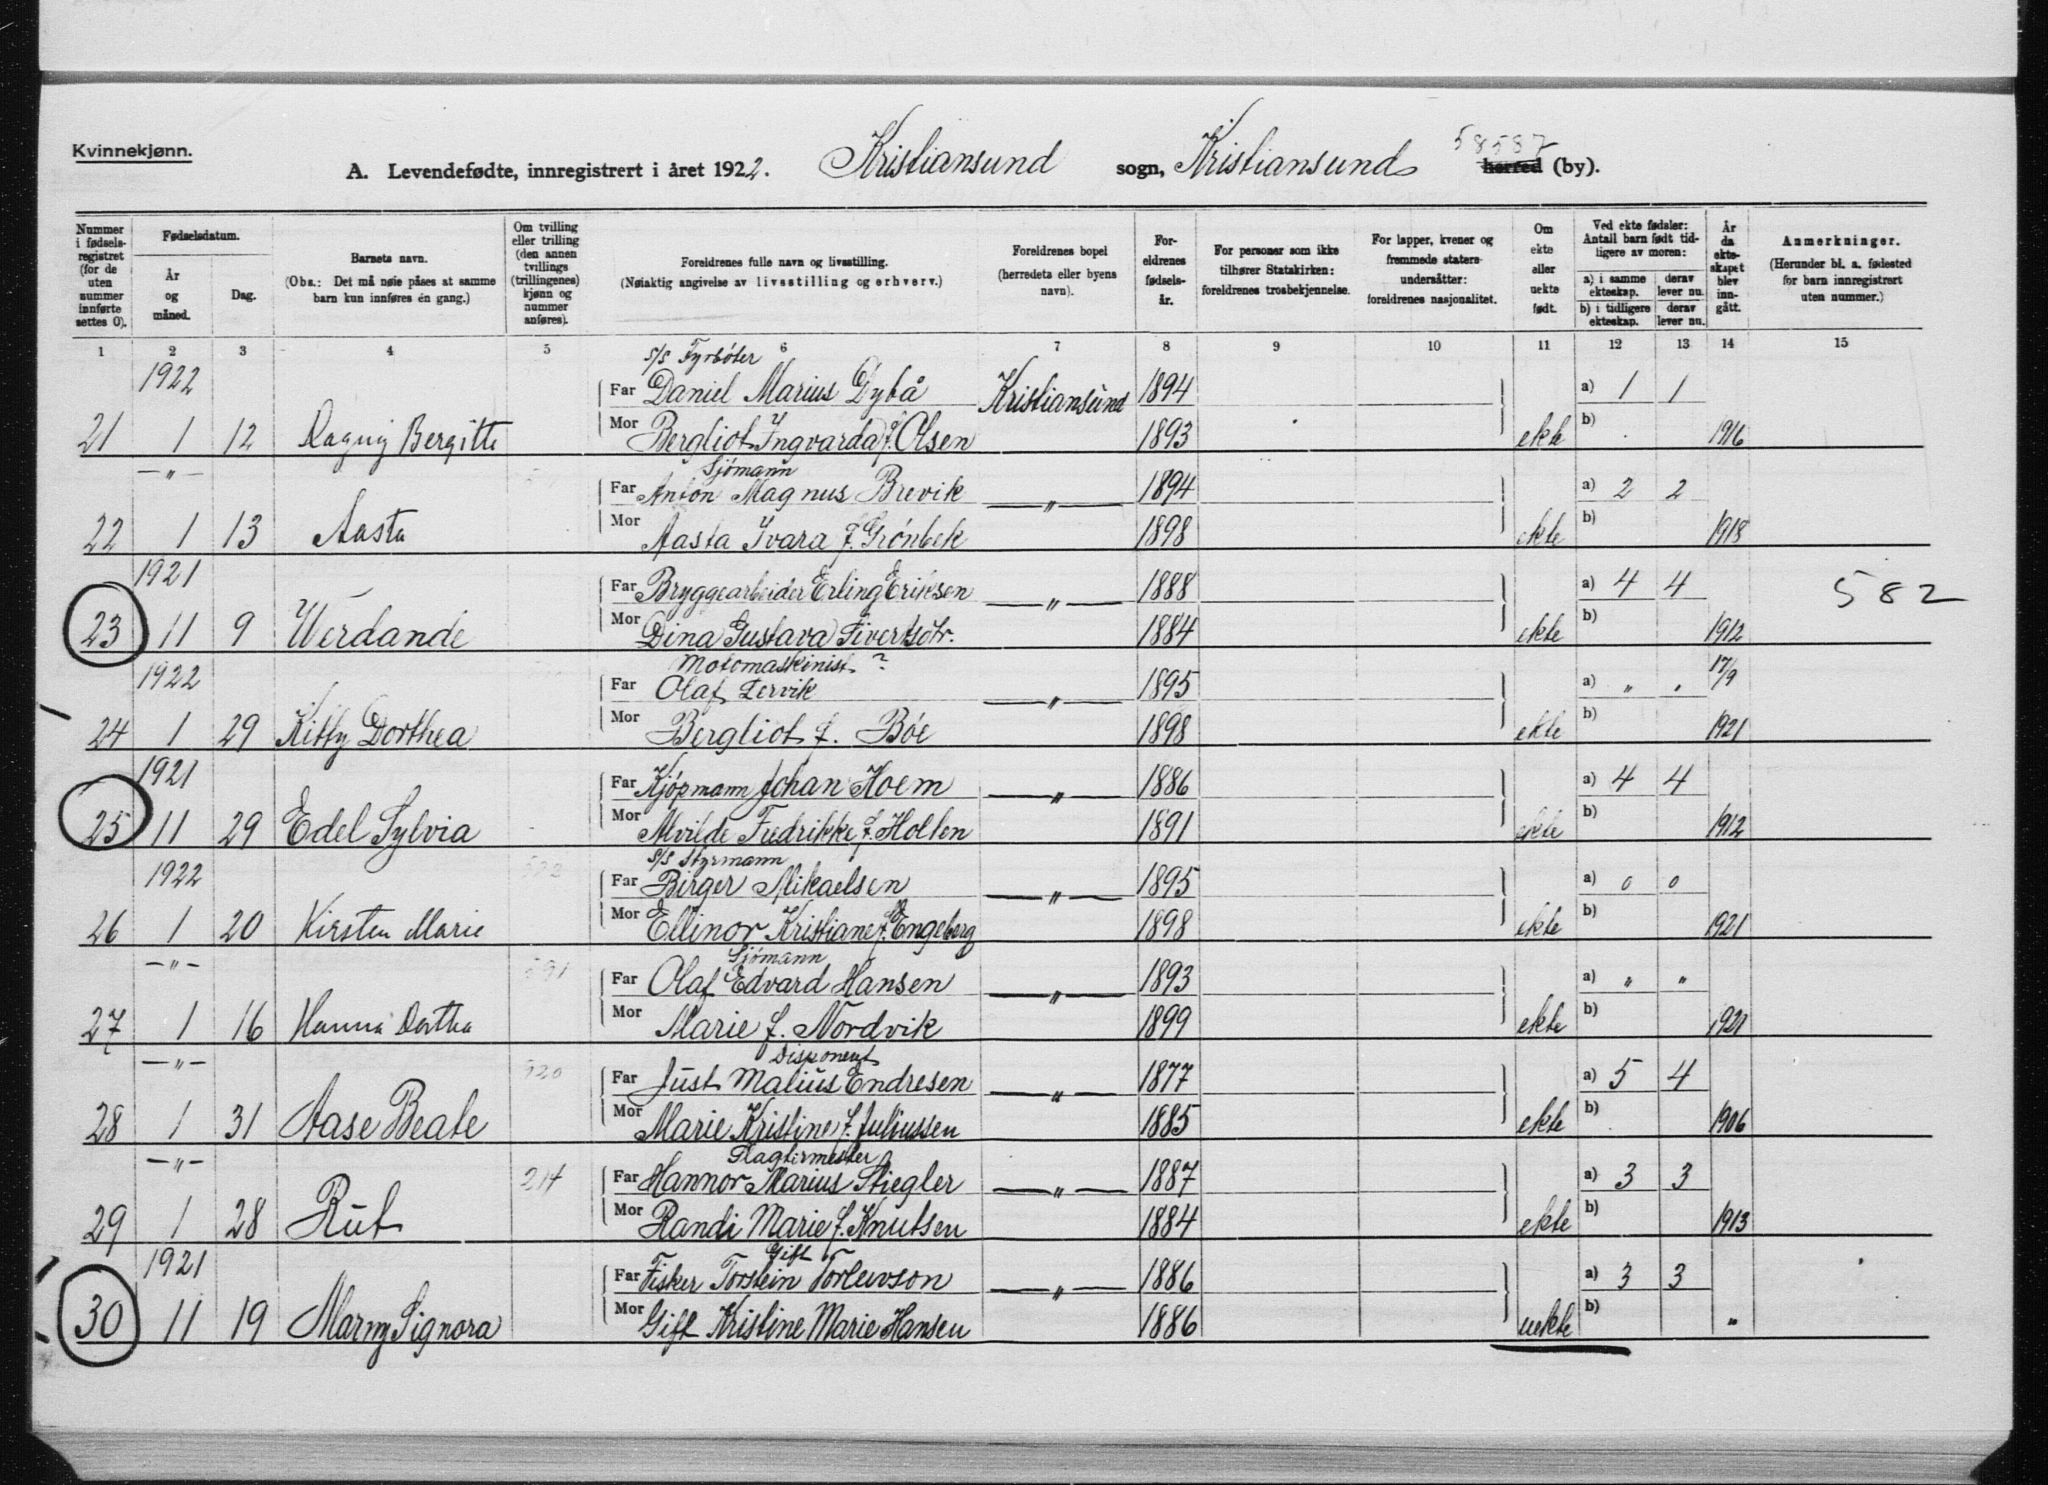 58587
Kvinnekjønn.
A. Levendefødte, innregistrert i året 1922. Kristiansund sogn, Kristiansund herred (by).
Nummer i fødselsregistret (for de uten nummer innførte settes 0).
Fødselsdatum.
År og måned.
Dag.
Barnets navn.
(Obs.: Det må nøie påses at samme barn kun innføres én gang.)
Om tvilling eller trilling (den annen tvillings (trillingenes) kjønn og nummer anføres).
Foreldrenes fulle navn og livsstilling.
(Nøiaktig angivelse av livsstilling og erhverv.)
Foreldrenes bopel (herredets eller byens navn).
Foreldrenes fødselsår.
For personer som ikke tilhører Statskirken: foreldrenes trosbekjennelse.
For lapper, kvener og fremmede statersundersåtter: foreldrenes nasjonalitet.
Om ekte eller uekte født.
Ved ekte fødsler: Antall barn født tidligere av moren:
a) i samme ekteskap. derav lever nu.
b) i tidligere ekteskap. derav lever nu.
År da ekteskapet blev inngått.
Anmerkninger.
(Herunder bl. a. fødested for barn innregistrert uten nummer.)
1 2 3 4 5 6 7 8 9 10 11 12 13 14 15
1922 s/s Fyrbøter
Far Daniel Marius Dybå Kristiansund 1894 a) 1 1
21 1 12 Dagny Bergitte Mor Bergliot Ingvarda f. Olsen 1893 ekte b) 1916
—"— Sjømann
Far Anton Magnus Brevik —"— 1894 a) 2 2
22 1 13 Aasta Mor Aasta Ivara f. Grønbek 1898 ekte b) 1918
1921 Far Bryggearbeider Erling Eriksen —"— 1888 a) 4 4 582
23 11 9 Werdande Mor Dina Gustava Sivertsdtr. 1884 ekte b) 1912
1922 Motomaskinist ? 17/9
Far Olaf —"— 1895 a) " "
24 1 29 Kitty Dorthea Mor Bergliot f. Bøe 1898 ekte b) 1921
1921 Far Kjøpmann Johan Hoem —"— 1886 a) 4 4
25 11 29 Edel Sylvia Mor Alvilde Fredrikke f. Hollen 1891 ekte b) 1912
1922 s/s Styrmann
Far Birger Mikaelsen —"— 1895 a) 0 0
26 1 20 Kirsten Marie Mor Ellinor Kristiane f. Engeberg 1898 ekte b) 1921
—"— Sjømann
Far Olaf Edvard Hansen —"— 1893 a) " "
27 1 16 Hanna Dortha Mor Marie f. Nordvik 1899 ekte b) 1921
—"— Disponent
520 Far Just Malius Endresen —"— 1877 a) 5 4
28 1 31 Aase Beate Mor Marie Kristine f. Juliussen 1885 ekte b) 1906
—"—
214 Far Hannor Marius Stiegler —"— 1887 a) 3 3
29 1 28 Rut Mor Randi Marie f. Knutsen 1884 ekte b) 1913
1921 Gift
Far Fisker Torstein Torleivson —"— 1886 a) 3 3
30 11 19 Marny Signora Mor Gift Kristine Marie Hansen 1886 uekte b) "